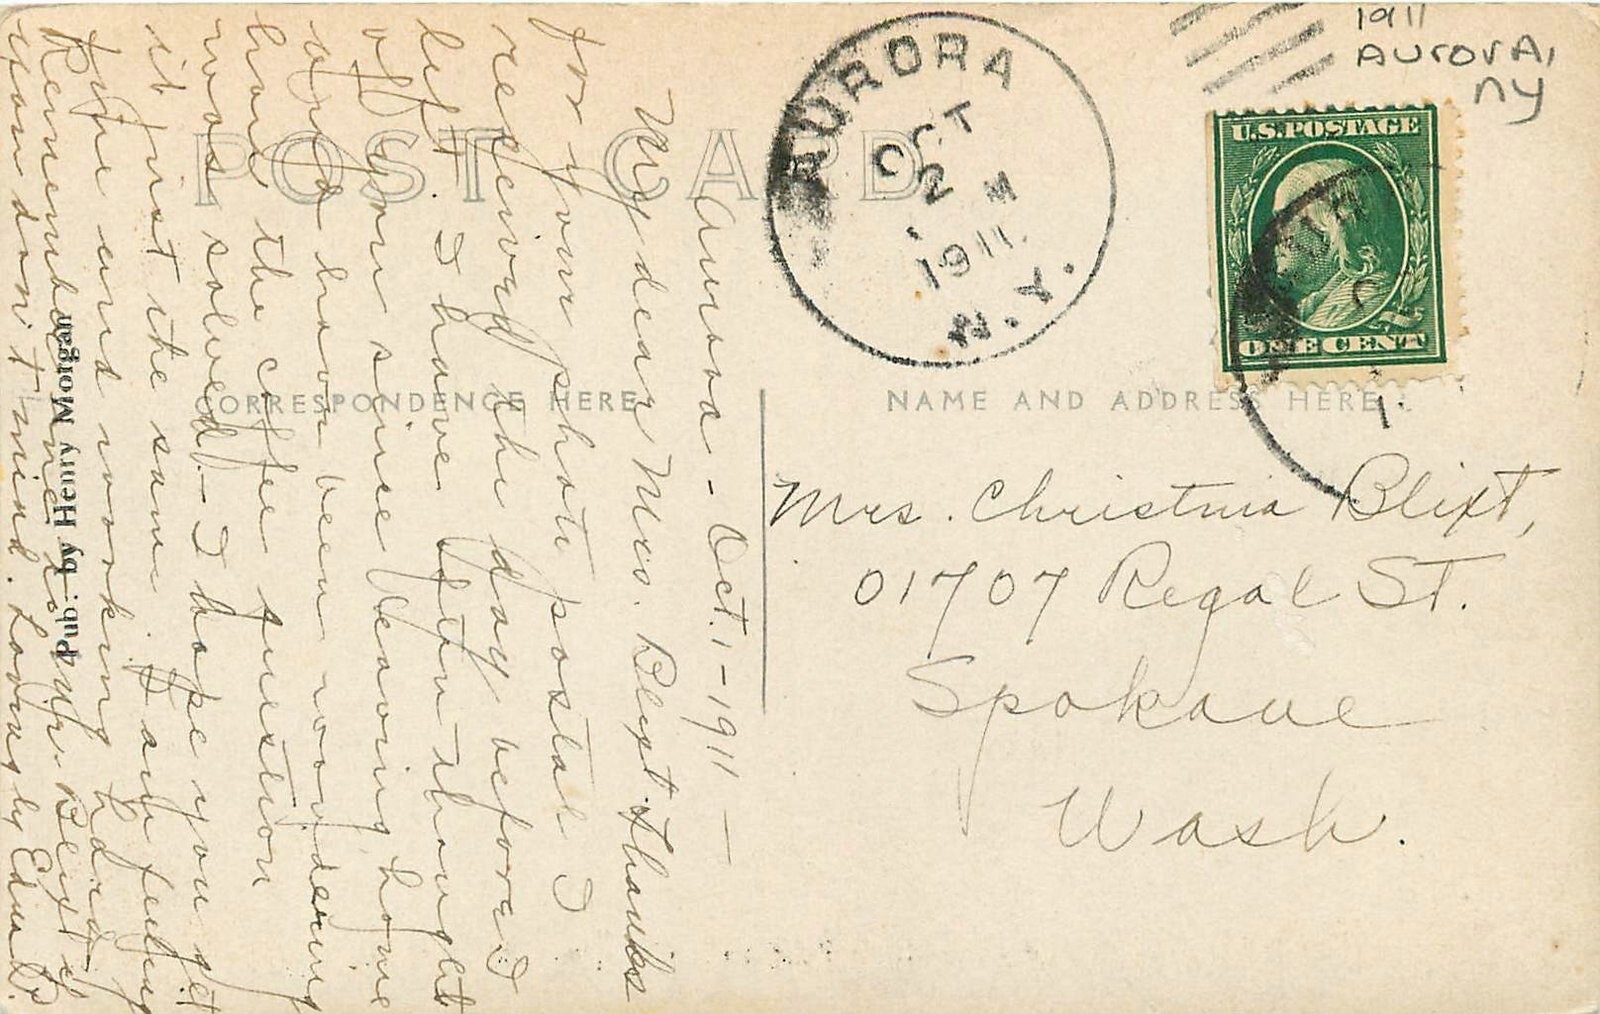 1911
AurorA,
NY
AURORA
OCT
2
M
1911.
N.Y.
U.S.POSTAGE
ONE CENT
POST CARD
CORRESPONDENCE HERE
NAME AND ADDRESS HERE
Mrs. Christina Blixt,
01707 Regal St.
Spokane
Wash.
Aurora - Oct. 1 - 1911 -
My dear Mrs. Blixt. Thanks
for your photo postal I
received the day before I
left. I have often thought
of you since leaving home
and have been wondering
how the coffee question
was solved - I hope you get
it just the same. I am feeling
fine and working hard -
Remember me to Mr. Blixt if
you don't mind. Lovingly Edna P.
Pub. by Henry Morgan